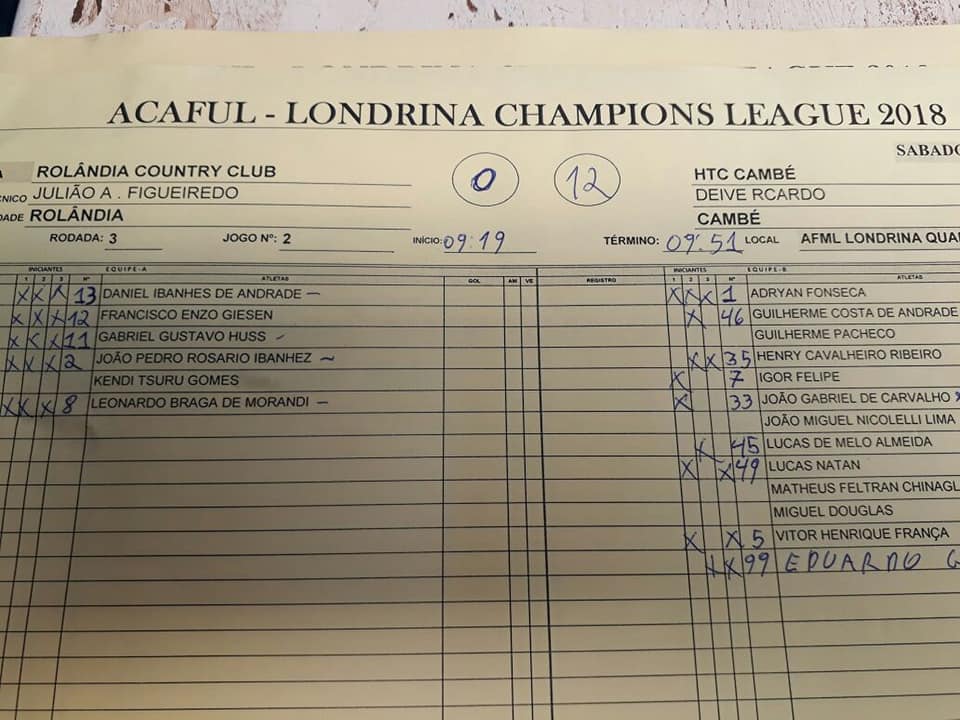 ACAFUL - LONDRINA CHAMPIONS LEAGUE 2018
SABADO
ROLÂNDIA COUNTRY CLUB 0 12 HTC CAMBÉ
JULIÃO A . FIGUEIREDO DEIVE RCARDO
ROLÂNDIA CAMBÉ
RODADA: 3 JOGO Nº: 2 INÍCIO: 09:19 TÉRMINO: 09:51 LOCAL AFML LONDRINA
INICIANTES EQUIPE-A INICIANTES EQUIPE-B
1 2 3 Nº ATLETAS GOL AM VE REGISTRO 1 2 3 Nº ATLETAS
X X X 13 DANIEL IBANHES DE ANDRADE – X X X 1 ADRYAN FONSECA
X X X 12 FRANCISCO ENZO GIESEN X 46 GUILHERME COSTA DE ANDRADE
X X X 11 GABRIEL GUSTAVO HUSS - GUILHERME PACHECO
X X X 2 JOÃO PEDRO ROSARIO IBANHEZ ~ X X 35 HENRY CAVALHEIRO RIBEIRO
KENDI TSURU GOMES X 7 IGOR FELIPE
X X X 8 LEONARDO BRAGA DE MORANDI – X 33 JOÃO GABRIEL DE CARVALHO
JOÃO MIGUEL NICOLELLI LIMA
X 45 LUCAS DE MELO ALMEIDA
X X 49 LUCAS NATAN
MATHEUS FELTRAN CHINAGL
MIGUEL DOUGLAS
X X 5 VITOR HENRIQUE FRANÇA
X X 99 EDUARDO G